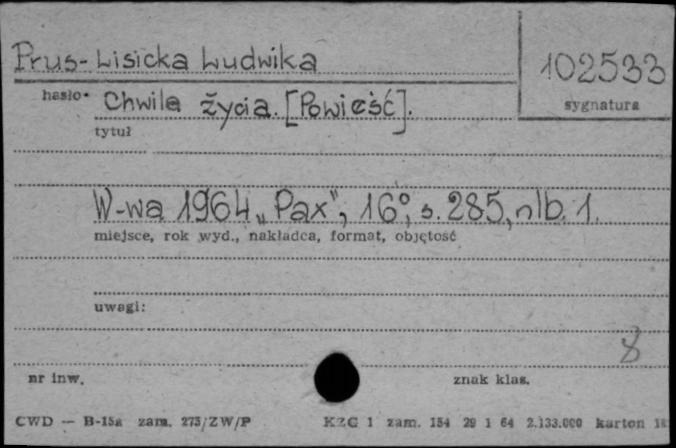 Prus-Lisicka Ludwika
102533
hasło
sygnatura
Chwila życia. [Powieść].
tytuł
W-wa 1964 „Pax”, 16°, s. 285, nlb. 1.
miejsce, rok wyd., nakładca, format, objętość
uwagi:
8
nr inw.
znak klas.
CWD — B-15a zam. 273/ZW/P KZG 1 zam. 154 29 1 64 2.133.000 karton